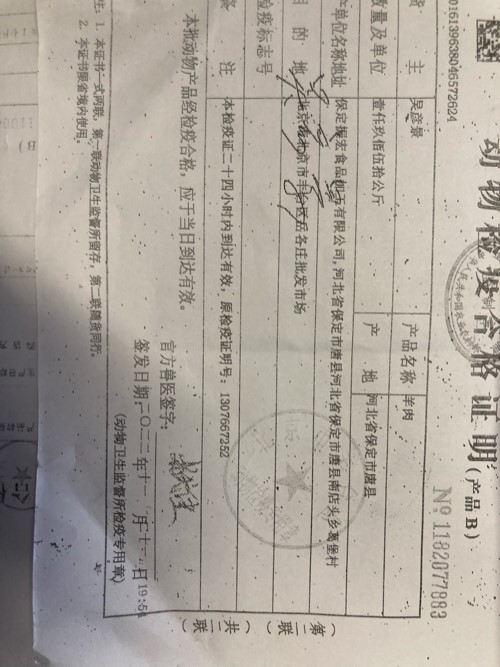 动物检疫合格证明(产品B)
016139638046572624
№1182077883
货 主 吴彦景 产品名称 羊肉
数量及单位 壹仟玖佰伍拾公斤 产 地 河北省保定市唐县
产单位名称地址 保定振宏食品加工有限公司,河北省保定市唐县河北省保定市唐县南店头乡葛堡村
目 的 地 北京市北京市丰台区岳各庄批发市场
检疫标志号
备 注 本检疫证二十四小时内到达有效,原检疫证明号:1307667252
本批动物产品经检疫合格,应于当日到达有效。
官方兽医签字:
签发日期:二〇二二年十一月二十一日19:54
(动物卫生监督所检疫专用章)
(第二联)
(共二联)
注:1.本证书一式两联,第一联动物卫生监督所留存,第二联随货同行。
2.本证书限省境内使用。